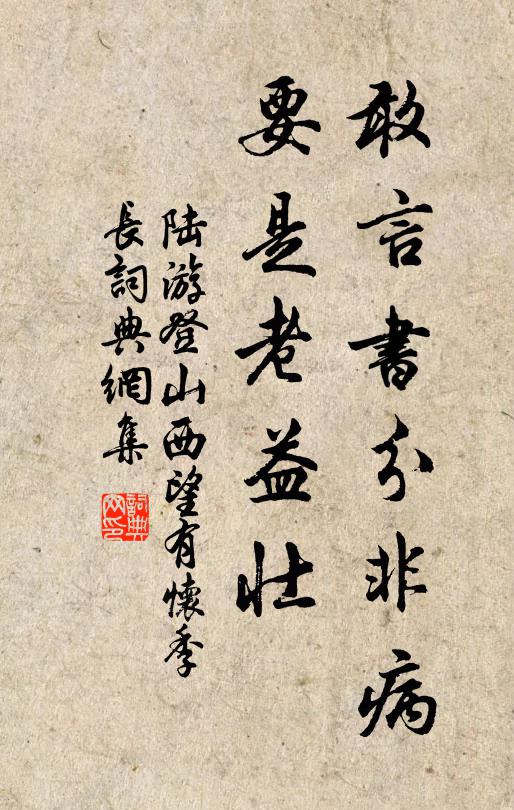 敢言書分非病
要是老益壮
陆游登山西望有懷季
長詞典網集
詞典
网印